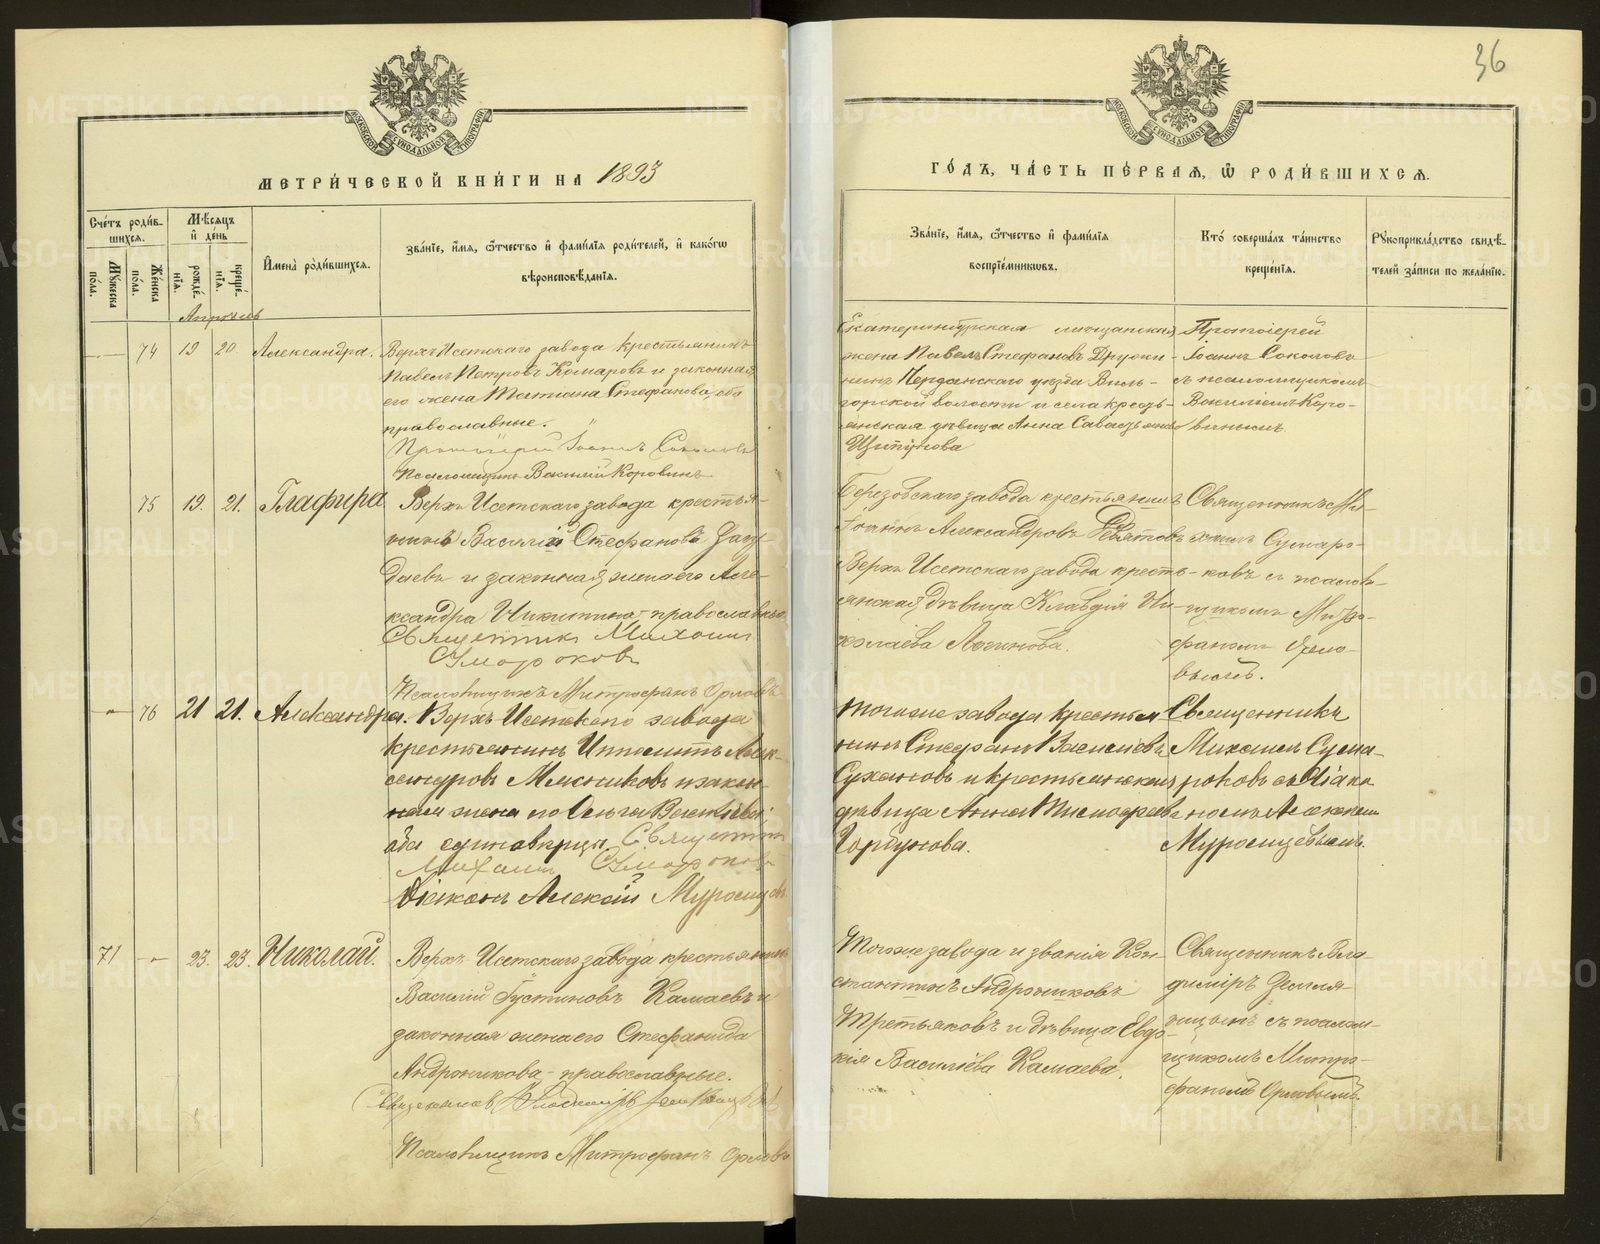 36
МЕТРИ́ЧЕСКОЙ КНИ́ГИ НА 1893
ГО́ДЪ, ЧА́СТЬ ПЕ́РВАѦ, Ѡ҆ РОДИ́ВШИХСѦ.
Сче́тъ роди́в-
шихсѧ.
Мꙋ́жеска по́ла.
Же́нска по́ла.
Мѣ́сѧцъ
и҆ де́нь
рожде́нїѧ.
креще́нїѧ.
И҆мена̀ роди́вшихсѧ.
Зва́нїе, и҆́мѧ, ѻ҆́тчество и҆ фами́лїѧ роди́телей, и҆ како́гѡ
вѣроисповѣ́данїѧ.
Зва́нїе, и҆́мѧ, ѻ҆́тчество и҆ фами́лїѧ
воспрїе́мникѡвъ.
Кто̀ соверша́лъ та́инство
креще́нїѧ.
Рꙋкоприкла́дство свидѣ́-
телей за́писи по жела́нїю.
Апрѣль
74 19 20 Александра.
Верхъ-Исетскаго завода крестьянинъ
Павелъ Петровъ Комаровъ и законная
его жена Татиана Стефанова, оба
православные.
Протоіерей Іоаннъ Соколовъ
Псаломщикъ Василій Коровинъ
Екатеринбургская мещанская
жена Павелъ Стефановъ Дружи-
нинъ Чердынскаго уѣзда Виль-
горской волости и села кресть-
янская дѣвица Анна
Щипунова
Протоіерей
Іоаннъ Соколовъ
съ псаломщикомъ
Василіемъ Коро-
винымъ.
75 19. 21. Глафира
Верхъ-Исетскаго завода крестья-
нинъ Василій Стефановъ
и законная жена его Але-
ксандра Никитина - православные
Священникъ Михаилъ
Сумароковъ
Псаломщикъ Митрофанъ Орловъ
Березовскаго завода крестьянинъ
Іоаннъ Александровъ Девятовъ
Верхъ Исетскаго завода кресть-
янская дѣвица Клавдія Ни-
колаева Логинова.
Священникъ Ми-
хаилъ Сумаро-
ковъ съ псалом-
щикомъ Митро-
фаномъ Орло-
вымъ.
76 21 21. Александра.
Верхъ Исетскаго завода
крестьянинъ Ипполитъ Алек-
сандровъ Мясниковъ и закон-
ная жена его Ольга Василье-
ва единовѣрцы. Священникъ
Михаилъ Сумароковъ
Діаконъ Алексій Муромцевъ
Тогоже завода крестья-
нинъ Стефанъ Васильевъ
Сухановъ и крестьянская
дѣвица Анна Тимофеева
Горбунова.
Священникъ
Михаилъ Сума-
роковъ съ Діако-
номъ Алексіемъ
Муромцевымъ.
71 23. 23. Николай.
Верхъ-Исетскаго завода крестьянинъ
Василій Іустиновъ Камаевъ и
законная жена его Стефанида
Андроникова - православные.
Священникъ Владиміръ Земляницынъ
Псаломщикъ Митрофанъ Орловъ
Тогоже завода и званія Кон-
стантинъ Андрониковъ
Третьяковъ и дѣвица Евдо-
кія Василіева Камаева.
Священникъ Вла-
диміръ Земля-
ницынъ съ псалом-
щикомъ Митро-
фаномъ Орловымъ.